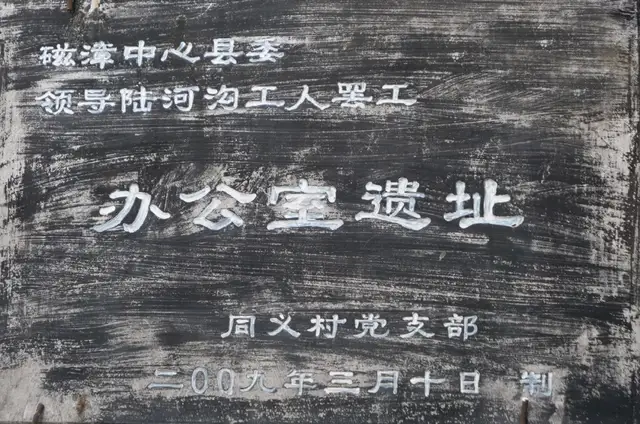 磁漳中心县委
领导陆河沟工人罢工
办公室遗址
同义村党支部
二00九年三月十日 制